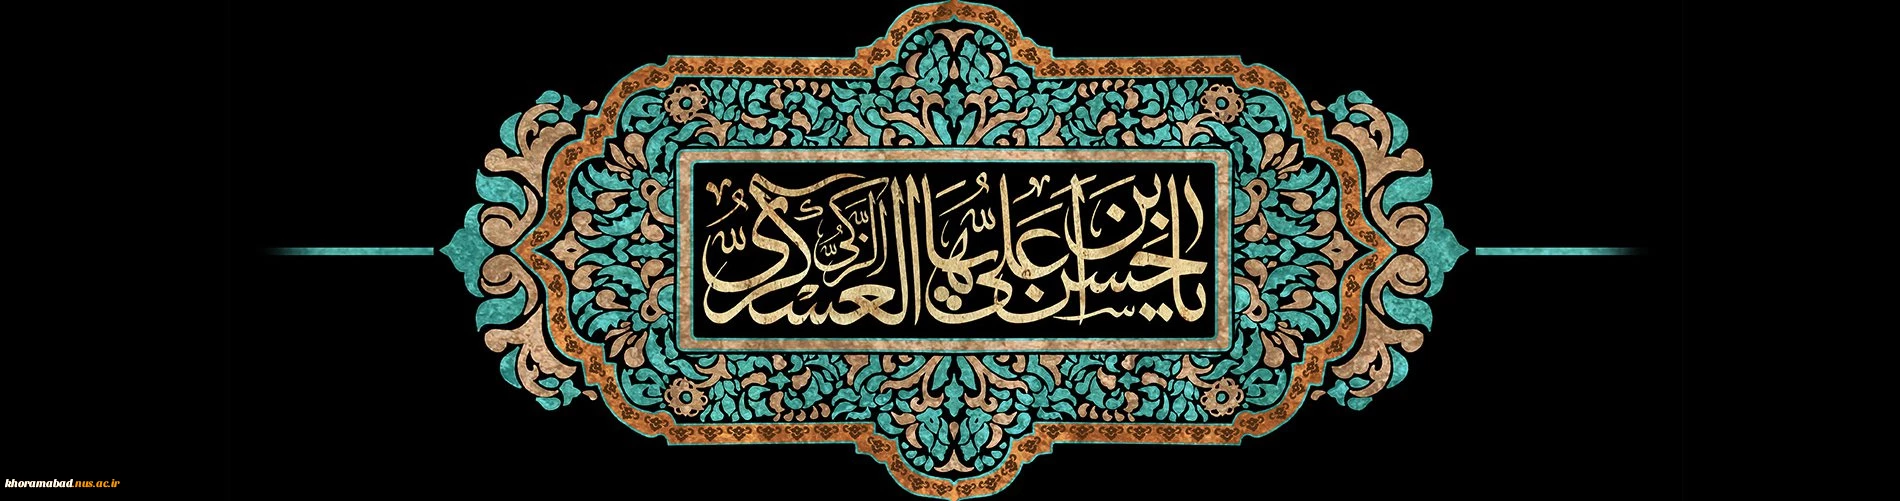 یا حسن بن علی ایها الزکی العسکری
khoramabad.nus.ac.ir